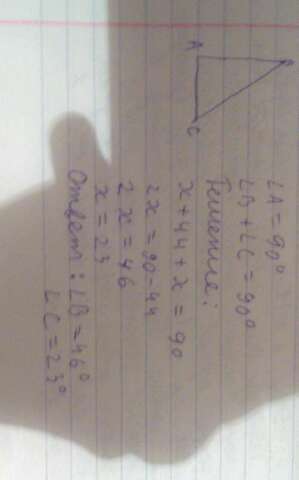 A B
C
∠A = 90°
∠B + ∠C = 90°
Решение:
x + 44 + x = 90
2x = 90 - 44
2x = 46
x = 23
Ответ: ∠B = 46°
∠C = 23°